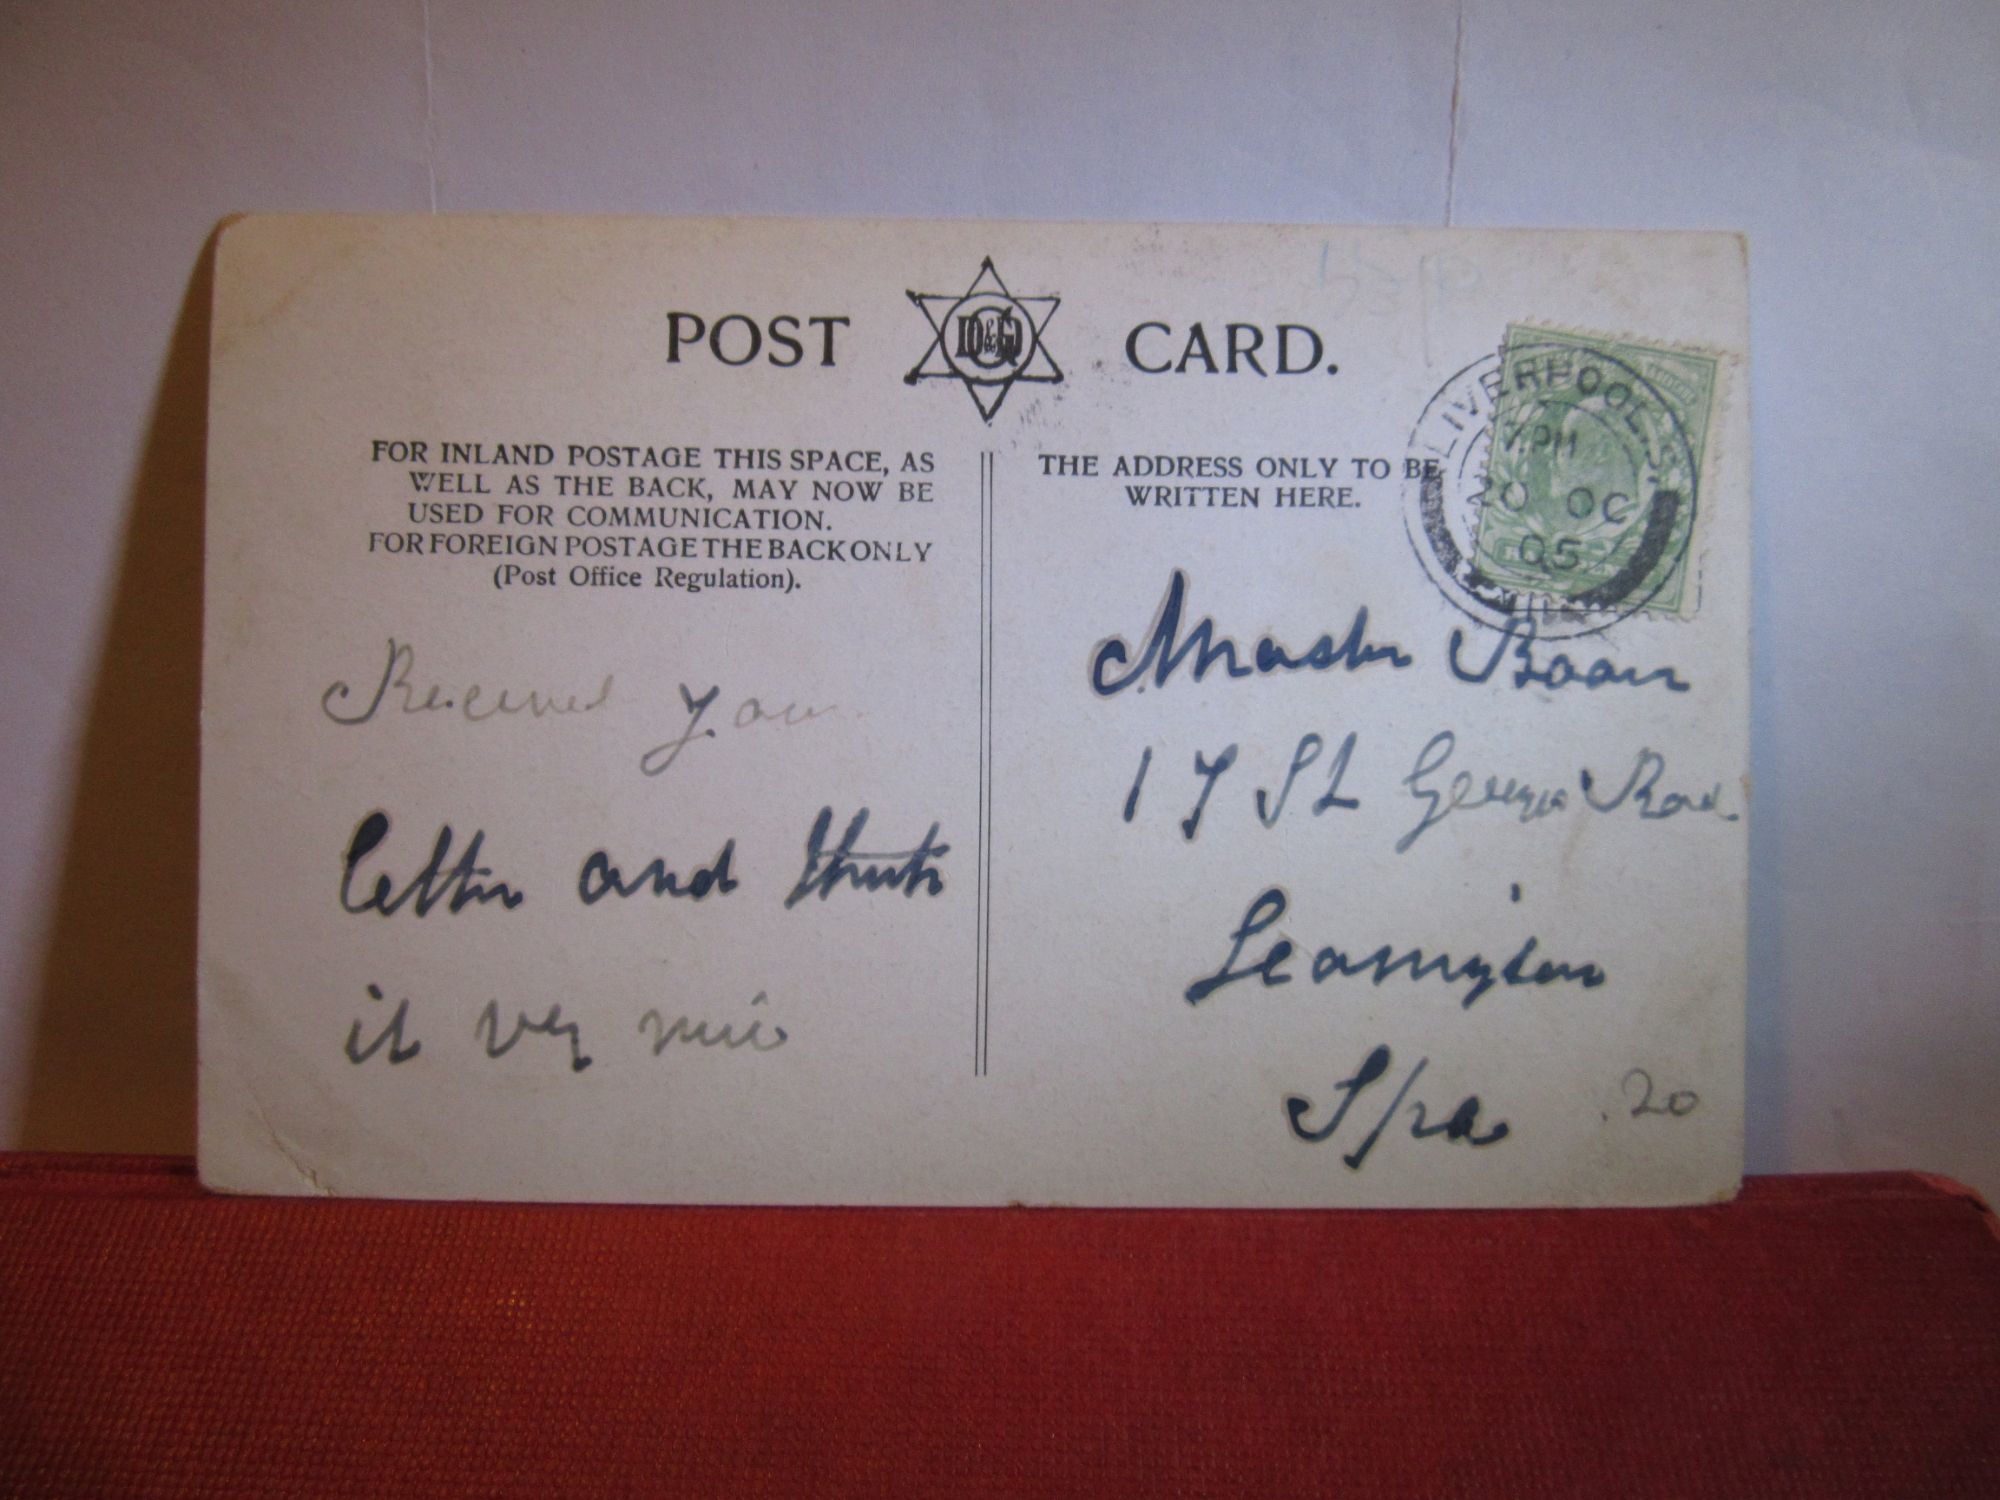 POST D&G CARD.
FOR INLAND POSTAGE THIS SPACE, AS
WELL AS THE BACK, MAY NOW BE
USED FOR COMMUNICATION.
FOR FOREIGN POSTAGE THE BACK ONLY
(Post Office Regulation).
THE ADDRESS ONLY TO BE
WRITTEN HERE.
LIVERPOOL.S.
7 PM
20 OC
05
Received your
letter and think
it very nice
Master
17 St Georges Road
Leamington
Spa
.20